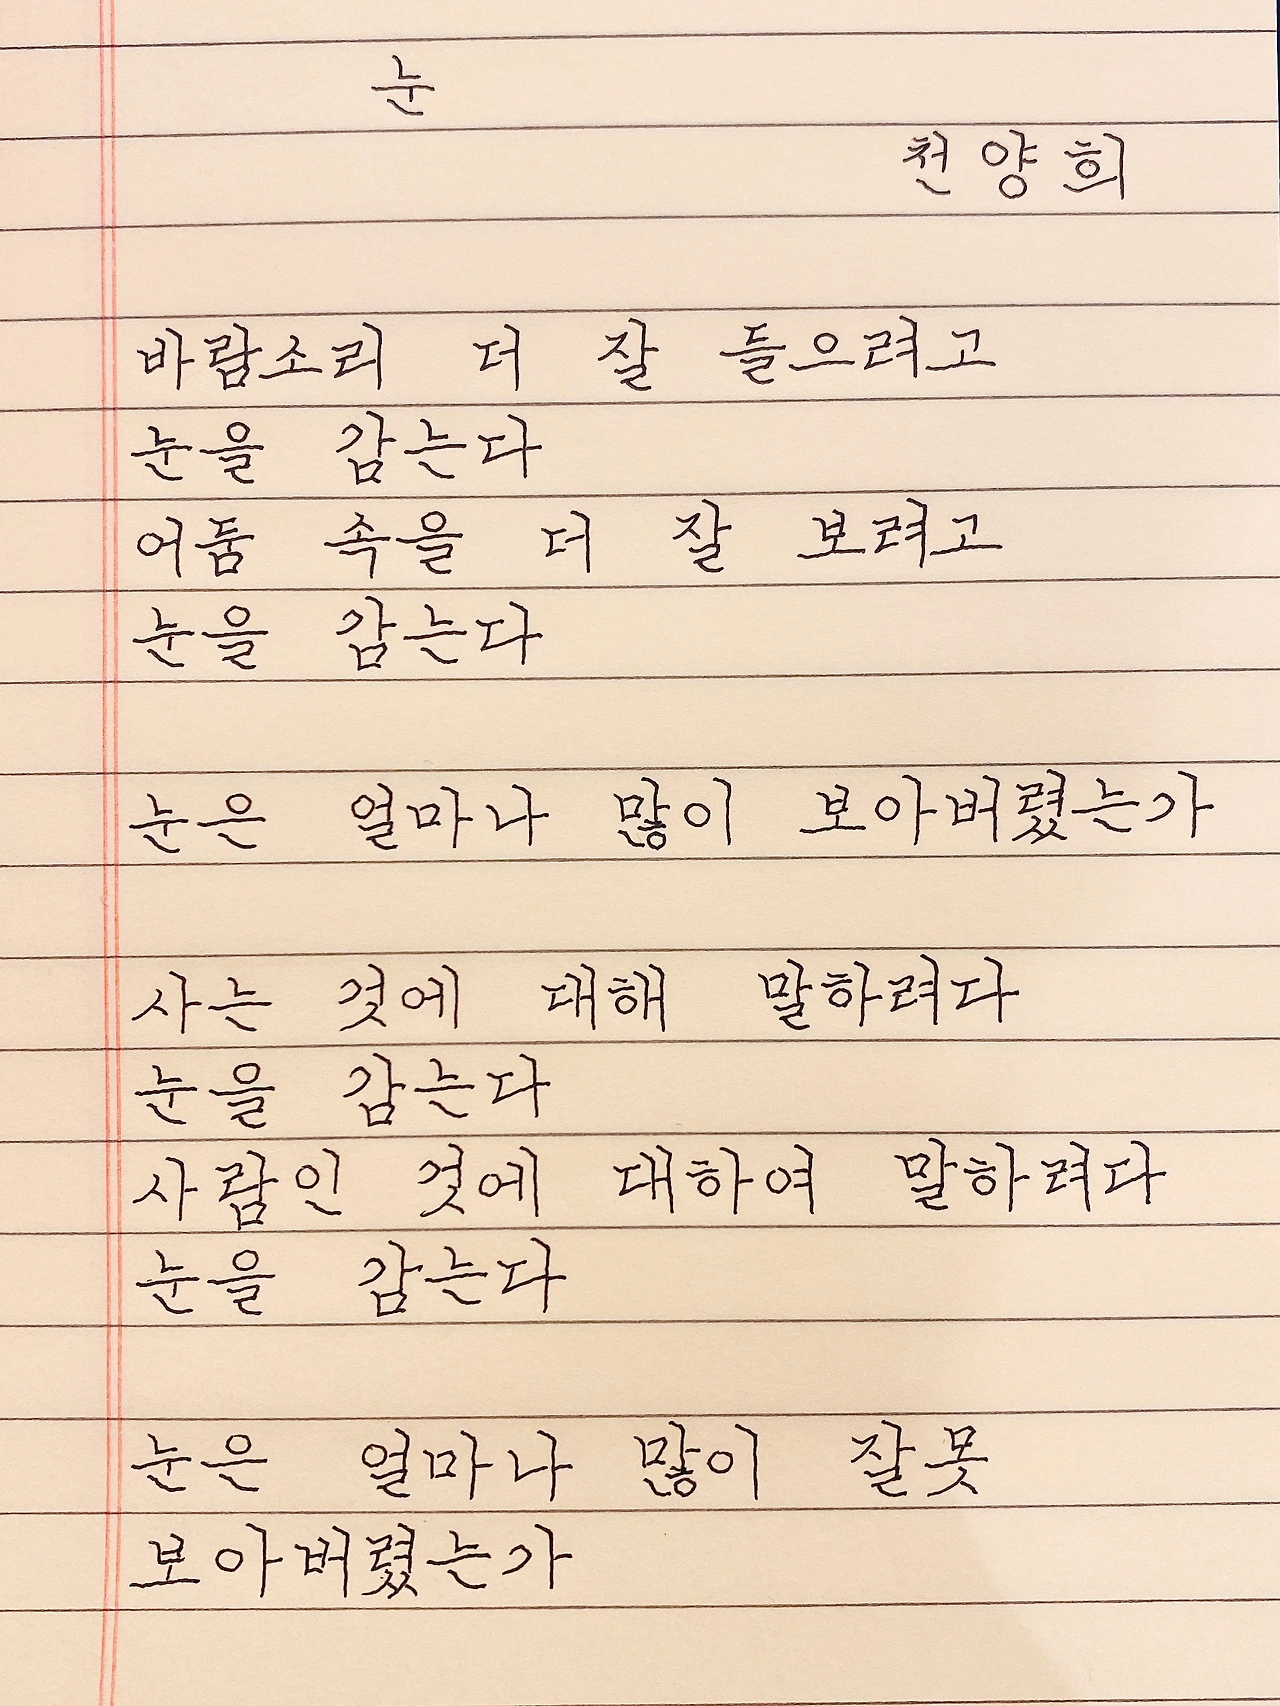 눈
천양희
바람소리 더 잘 들으려고
눈을 감는다
어둠 속을 더 잘 보려고
눈을 감는다
눈은 얼마나 많이 보아버렸는가
사는 것에 대해 말하려다
눈을 감는다
사람인 것에 대하여 말하려다
눈을 감는다
눈은 얼마나 많이 잘못
보아버렸는가